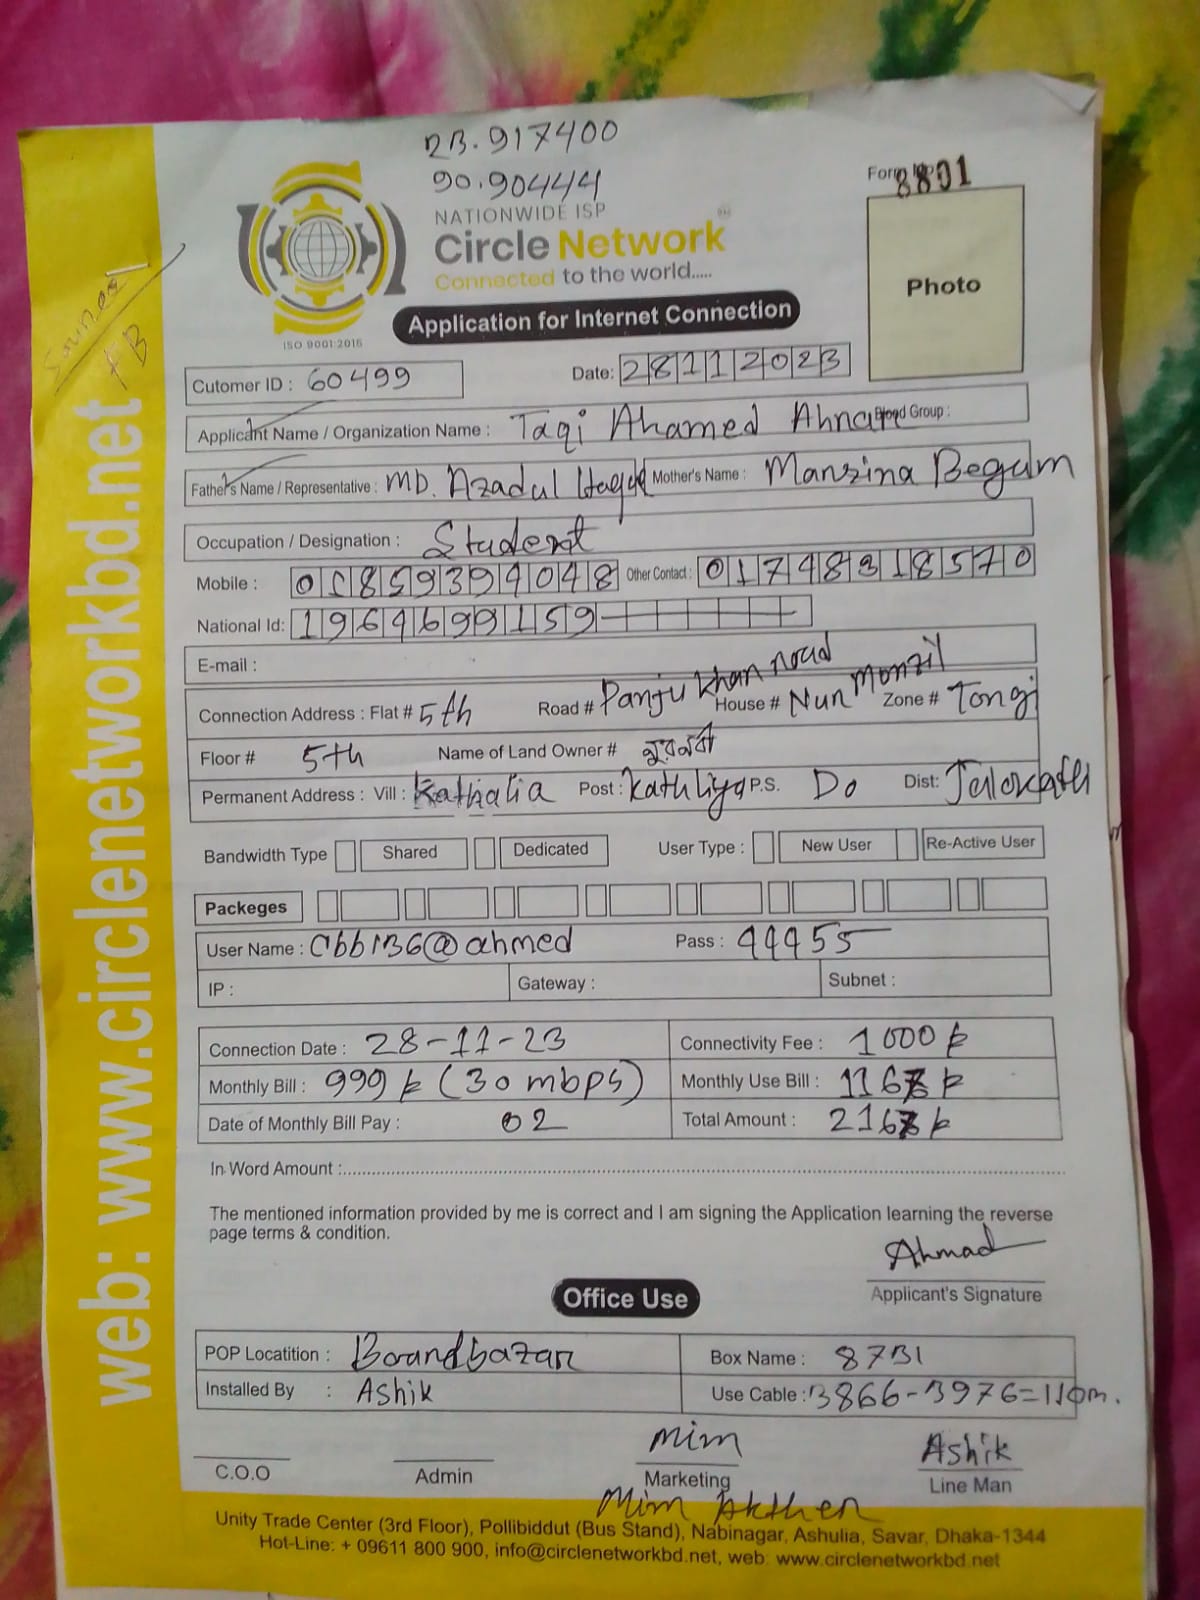 23.917400
90.90444
Form No 8801
NATIONWIDE ISP
Circle Network
Connected to the world.....
Photo
Application for Internet Connection
ISO 9001:2015
Cutomer ID : 60499
Date: 28112023
Applicant Name / Organization Name : Taqi Ahamed Ahnaf Blood Group :
Father's Name / Representative : MD. Azadul Haque Mother's Name : Manzina Begum
Occupation / Designation : Student
Mobile : 01859394048 Other Contact : 01748318570
National Id: 1964699159
E-mail :
Connection Address : Flat # 5th Road # Panju Khan road House # Nur Monzil Zone # Tongi
Floor # 5th Name of Land Owner # নুরনবী
Permanent Address : Vill : Kathalia Post : Kathliya P.S. Do Dist: Jalokathi
Bandwidth Type Shared Dedicated User Type : New User Re-Active User
Packeges
User Name : cbb136@ahmed Pass : 99955
IP : Gateway : Subnet :
Connection Date : 28-11-23 Connectivity Fee : 1000 ৳
Monthly Bill : 999 ৳ (30 mbps) Monthly Use Bill : ৳
Date of Monthly Bill Pay : 02 Total Amount : ৳
In Word Amount :
The mentioned information provided by me is correct and I am signing the Application learning the reverse
page terms & condition.
Ahmad
Applicant's Signature
Office Use
POP Locatition : Boardbazar Box Name : 8731
Installed By : Ashik Use Cable : 3866-3976=110m.
C.O.O Admin Mim Marketing Ashik Line Man
Mim Akther
Unity Trade Center (3rd Floor), Pollibiddut (Bus Stand), Nabinagar, Ashulia, Savar, Dhaka-1344
Hot-Line: + 09611 800 900, info@circlenetworkbd.net, web: www.circlenetworkbd.net
web: www.circlenetworkbd.net
FB